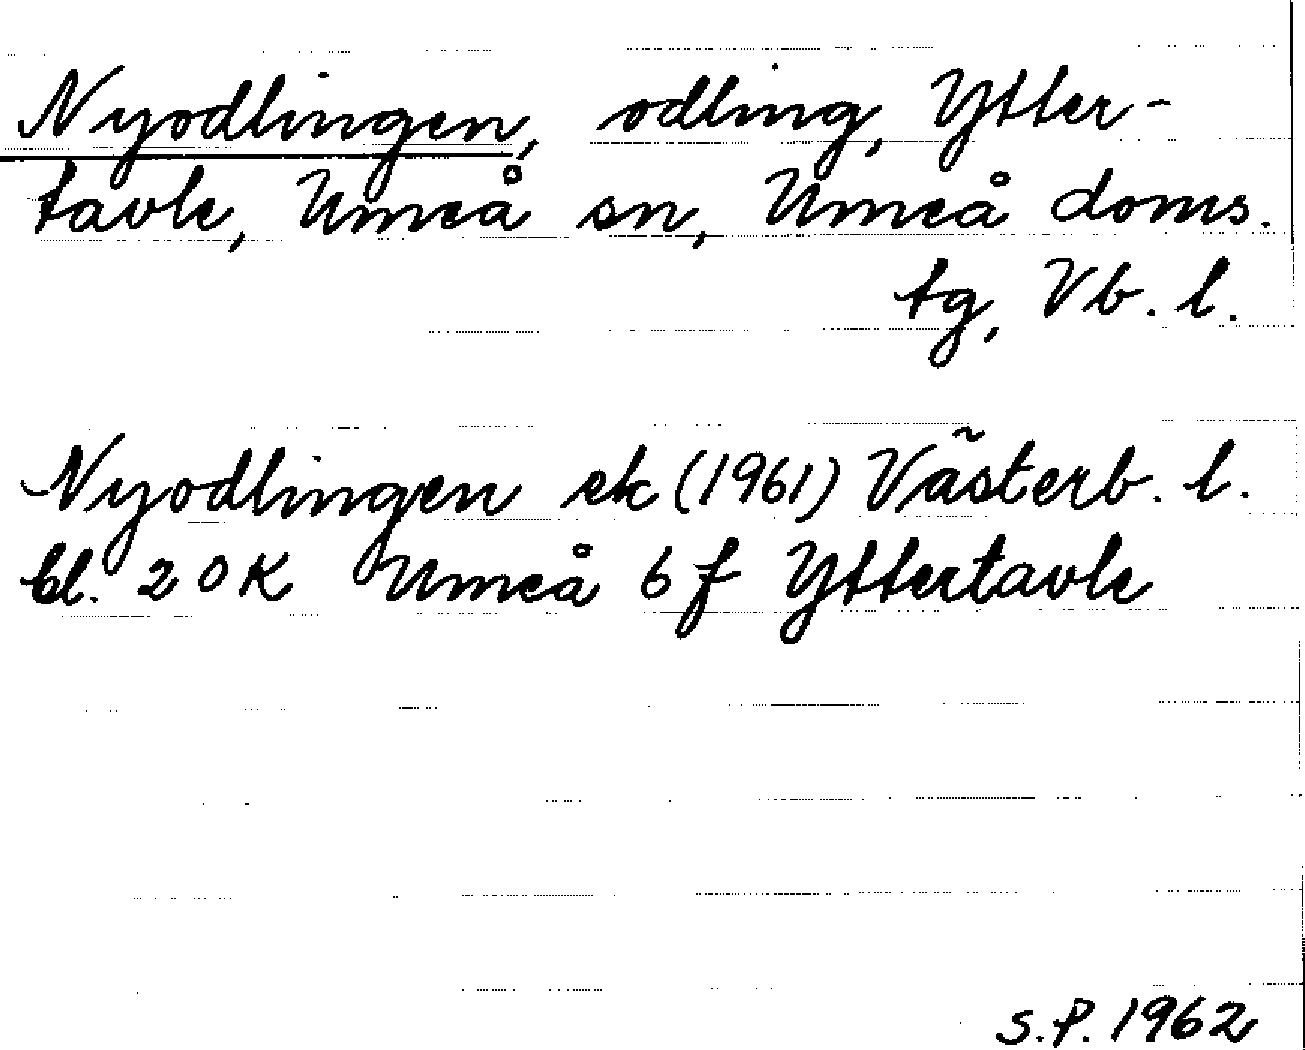 Nyodlingen, odling, Ytter-
tavle, Umeå sn, Umeå doms.
tg, Vb. l.
Nyodlingen ek (1961) Västerb. l.
bl. 20K Umeå 6f Yttertavle
S.P. 1962